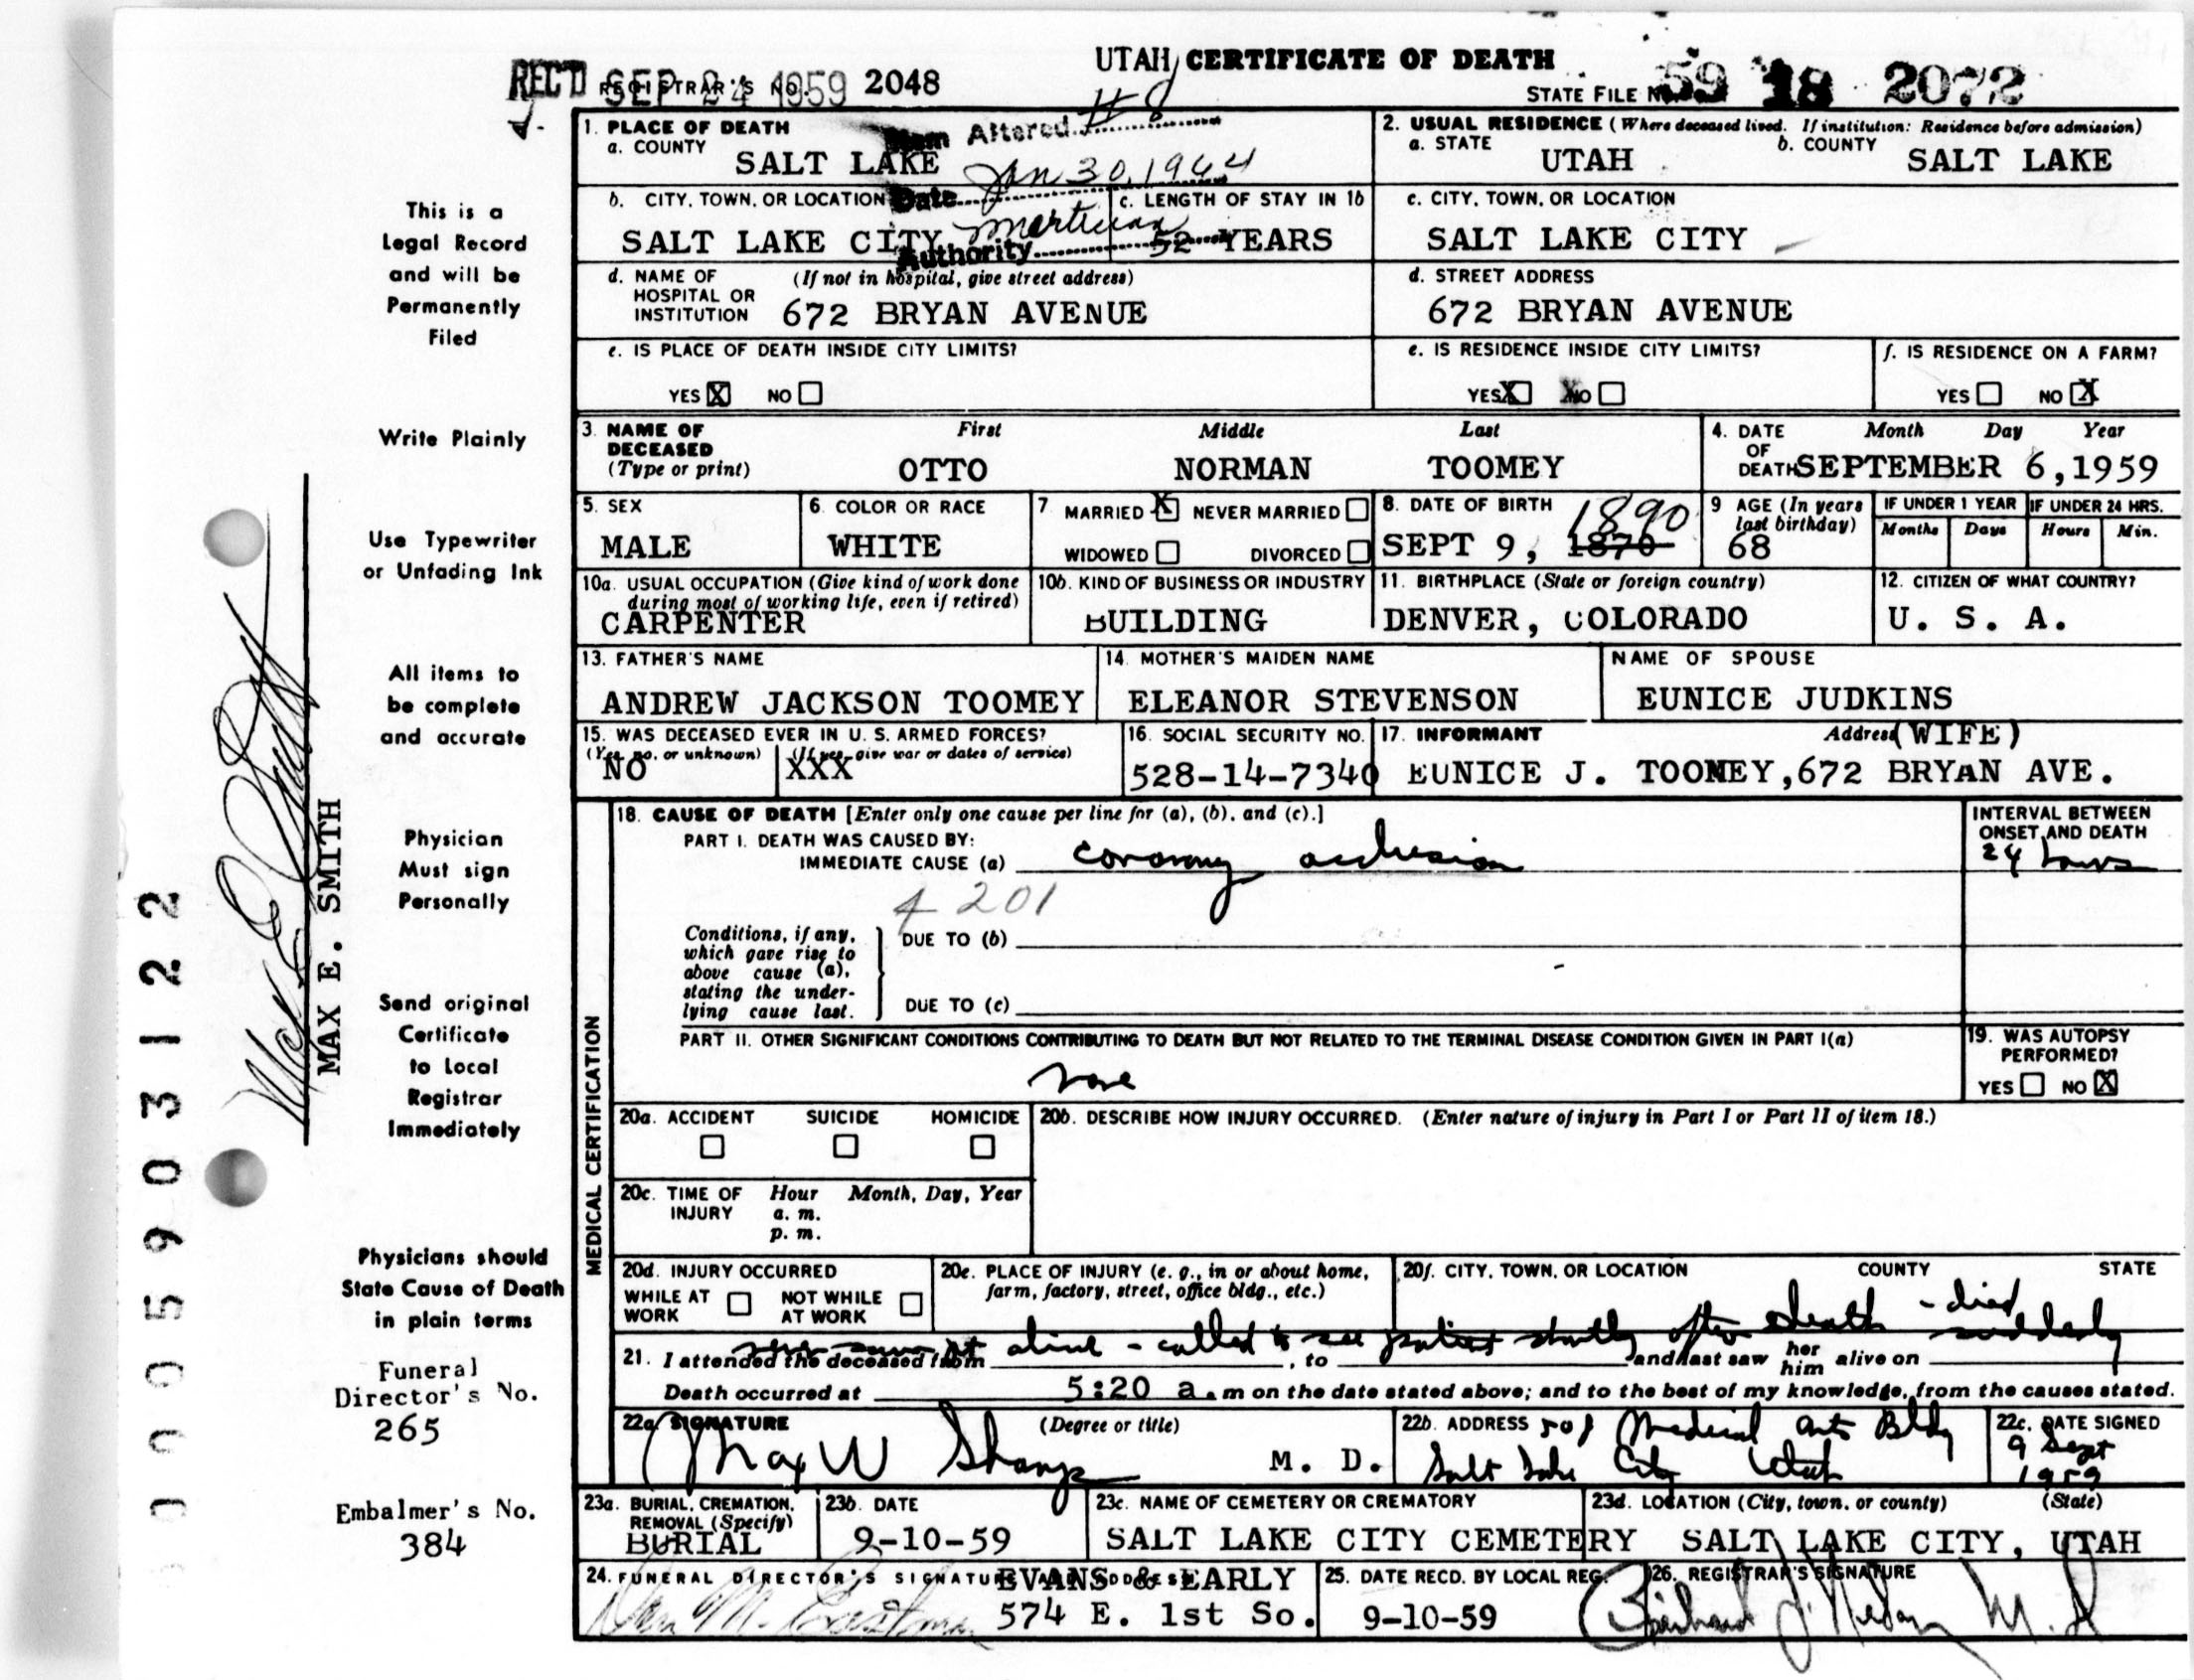 UTAH CERTIFICATE OF DEATH
REC'D SEP 24 1959 REGISTRAR'S NO. 2048
STATE FILE NO. 59 18 2072
1. PLACE OF DEATH
a. COUNTY
SALT LAKE
Item Altered #8
Date Jan 30, 1964
Authority Mortician
2. USUAL RESIDENCE (Where deceased lived. If institution: Residence before admission)
a. STATE UTAH b. COUNTY SALT LAKE
b. CITY, TOWN, OR LOCATION
SALT LAKE CITY
c. LENGTH OF STAY IN 1b
52 YEARS
c. CITY, TOWN, OR LOCATION
SALT LAKE CITY
d. NAME OF HOSPITAL OR INSTITUTION (If not in hospital, give street address)
672 BRYAN AVENUE
d. STREET ADDRESS
672 BRYAN AVENUE
e. IS PLACE OF DEATH INSIDE CITY LIMITS?
YES X NO
e. IS RESIDENCE INSIDE CITY LIMITS?
YES X NO
f. IS RESIDENCE ON A FARM?
YES NO X
3. NAME OF DECEASED (Type or print)
First Middle Last
OTTO NORMAN TOOMEY
4. DATE OF DEATH Month Day Year
SEPTEMBER 6, 1959
5. SEX
MALE
6. COLOR OR RACE
WHITE
7 MARRIED X NEVER MARRIED
WIDOWED DIVORCED
8. DATE OF BIRTH
SEPT 9, 1870 1890
9 AGE (In years last birthday)
68
IF UNDER 1 YEAR IF UNDER 24 HRS.
Months Days Hours Min.
10a. USUAL OCCUPATION (Give kind of work done during most of working life, even if retired)
CARPENTER
10b. KIND OF BUSINESS OR INDUSTRY
BUILDING
11. BIRTHPLACE (State or foreign country)
DENVER, COLORADO
12. CITIZEN OF WHAT COUNTRY?
U. S. A.
13. FATHER'S NAME
ANDREW JACKSON TOOMEY
14. MOTHER'S MAIDEN NAME
ELEANOR STEVENSON
NAME OF SPOUSE
EUNICE JUDKINS
15. WAS DECEASED EVER IN U. S. ARMED FORCES?
(Yes, no, or unknown) (If yes, give war or dates of service)
NO XXX
16. SOCIAL SECURITY NO.
528-14-7340
17. INFORMANT Address (WIFE)
EUNICE J. TOOMEY, 672 BRYAN AVE.
MEDICAL CERTIFICATION
18. CAUSE OF DEATH [Enter only one cause per line for (a), (b), and (c).]
PART I. DEATH WAS CAUSED BY:
IMMEDIATE CAUSE (a) coronary occlusion
4 201
INTERVAL BETWEEN ONSET AND DEATH
24 hours
Conditions, if any, which gave rise to above cause (a), stating the underlying cause last.
DUE TO (b)
DUE TO (c)
PART II. OTHER SIGNIFICANT CONDITIONS CONTRIBUTING TO DEATH BUT NOT RELATED TO THE TERMINAL DISEASE CONDITION GIVEN IN PART I(a)
none
19. WAS AUTOPSY PERFORMED?
YES NO X
20a. ACCIDENT SUICIDE HOMICIDE
20b. DESCRIBE HOW INJURY OCCURRED. (Enter nature of injury in Part I or Part II of item 18.)
20c. TIME OF INJURY Hour Month, Day, Year
a. m.
p. m.
20d. INJURY OCCURRED
WHILE AT WORK NOT WHILE AT WORK
20e. PLACE OF INJURY (e. g., in or about home, farm, factory, street, office bldg., etc.)
20f. CITY, TOWN, OR LOCATION COUNTY STATE
never saw pt alive - called to see patient shortly after death - died suddenly
21. I attended the deceased from , to and last saw her him alive on
Death occurred at 5:20 a. m on the date stated above; and to the best of my knowledge, from the causes stated.
22a. SIGNATURE (Degree or title)
Max W Sharp M. D.
22b. ADDRESS 508 Medical Arts Bldg
Salt Lake City Utah
22c. DATE SIGNED
9 Sept 1959
23a. BURIAL, CREMATION, REMOVAL (Specify)
BURIAL
23b. DATE
9-10-59
23c. NAME OF CEMETERY OR CREMATORY
SALT LAKE CITY CEMETERY
23d. LOCATION (City, town, or county) (State)
SALT LAKE CITY, UTAH
24. FUNERAL DIRECTOR'S SIGNATURE AND ADDRESS
EVANS & EARLY
574 E. 1st So.
25. DATE RECD. BY LOCAL REG.
9-10-59
26. REGISTRAR'S SIGNATURE
This is a
Legal Record
and will be
Permanently
Filed
Write Plainly
Use Typewriter
or Unfading Ink
All items to
be complete
and accurate
Physician
Must sign
Personally
Send original
Certificate
to Local
Registrar
Immediately
Physicians should
State Cause of Death
in plain terms
Funeral
Director's No.
265
Embalmer's No.
384
Max E. Smith
MAX E. SMITH
0005903122